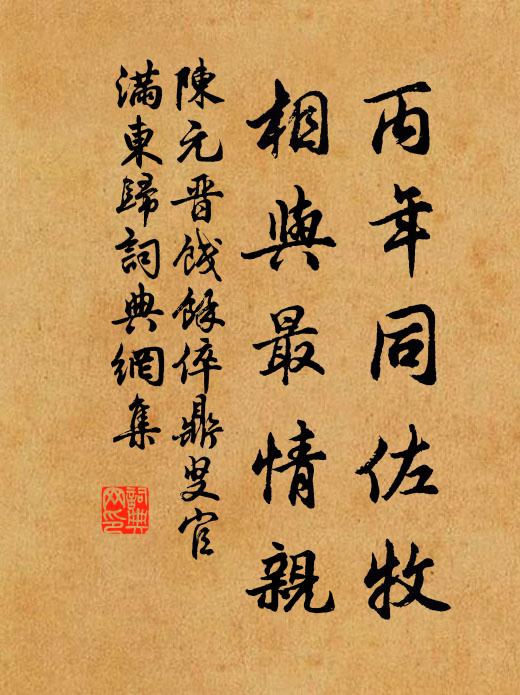 丙年同佐牧
相與最情親
陳元晋餞餘倅鼎叟官
滿東歸詞典網集
詞典網印